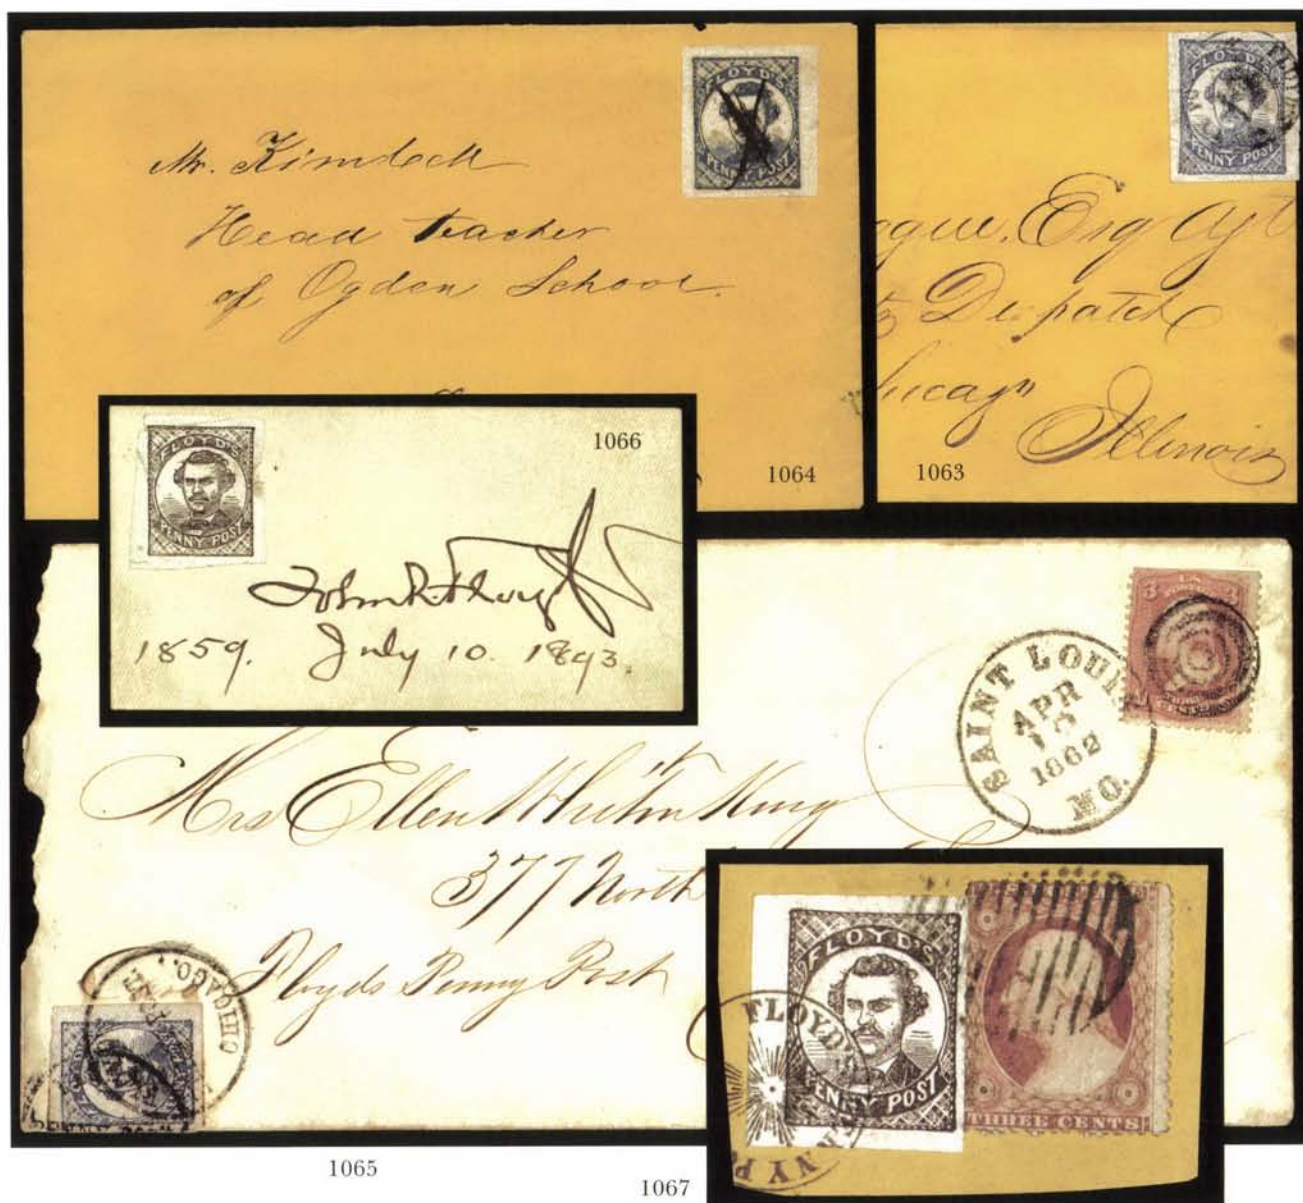 FLOYD'S
PENNY POST
Mr. Kimball
Head teacher
of Ogden School.
1064
FLOYD'S
PENNY POST
Esq Agt
Despatch
Chicago
Illinois
1063
FLOYD'S
PENNY POST
1066
John R. Floyd
1859. July 10. 1893.
3 U.S. 3
SAINT LOUIS
APR
10
1862
MO.
Mrs Ellen
377 North
Floyds Penny Post
CHICAGO.
FLOYD'S
PENNY POST
FLOYD'S
NY P
THREE CENTS
1065
1067